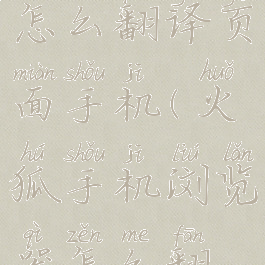 怎么翻译页
miàn shǒu jī huǒ
面手机(火
hú shǒu jī liú lǎn
狐手机浏览
qì zěn me fān
器怎么翻